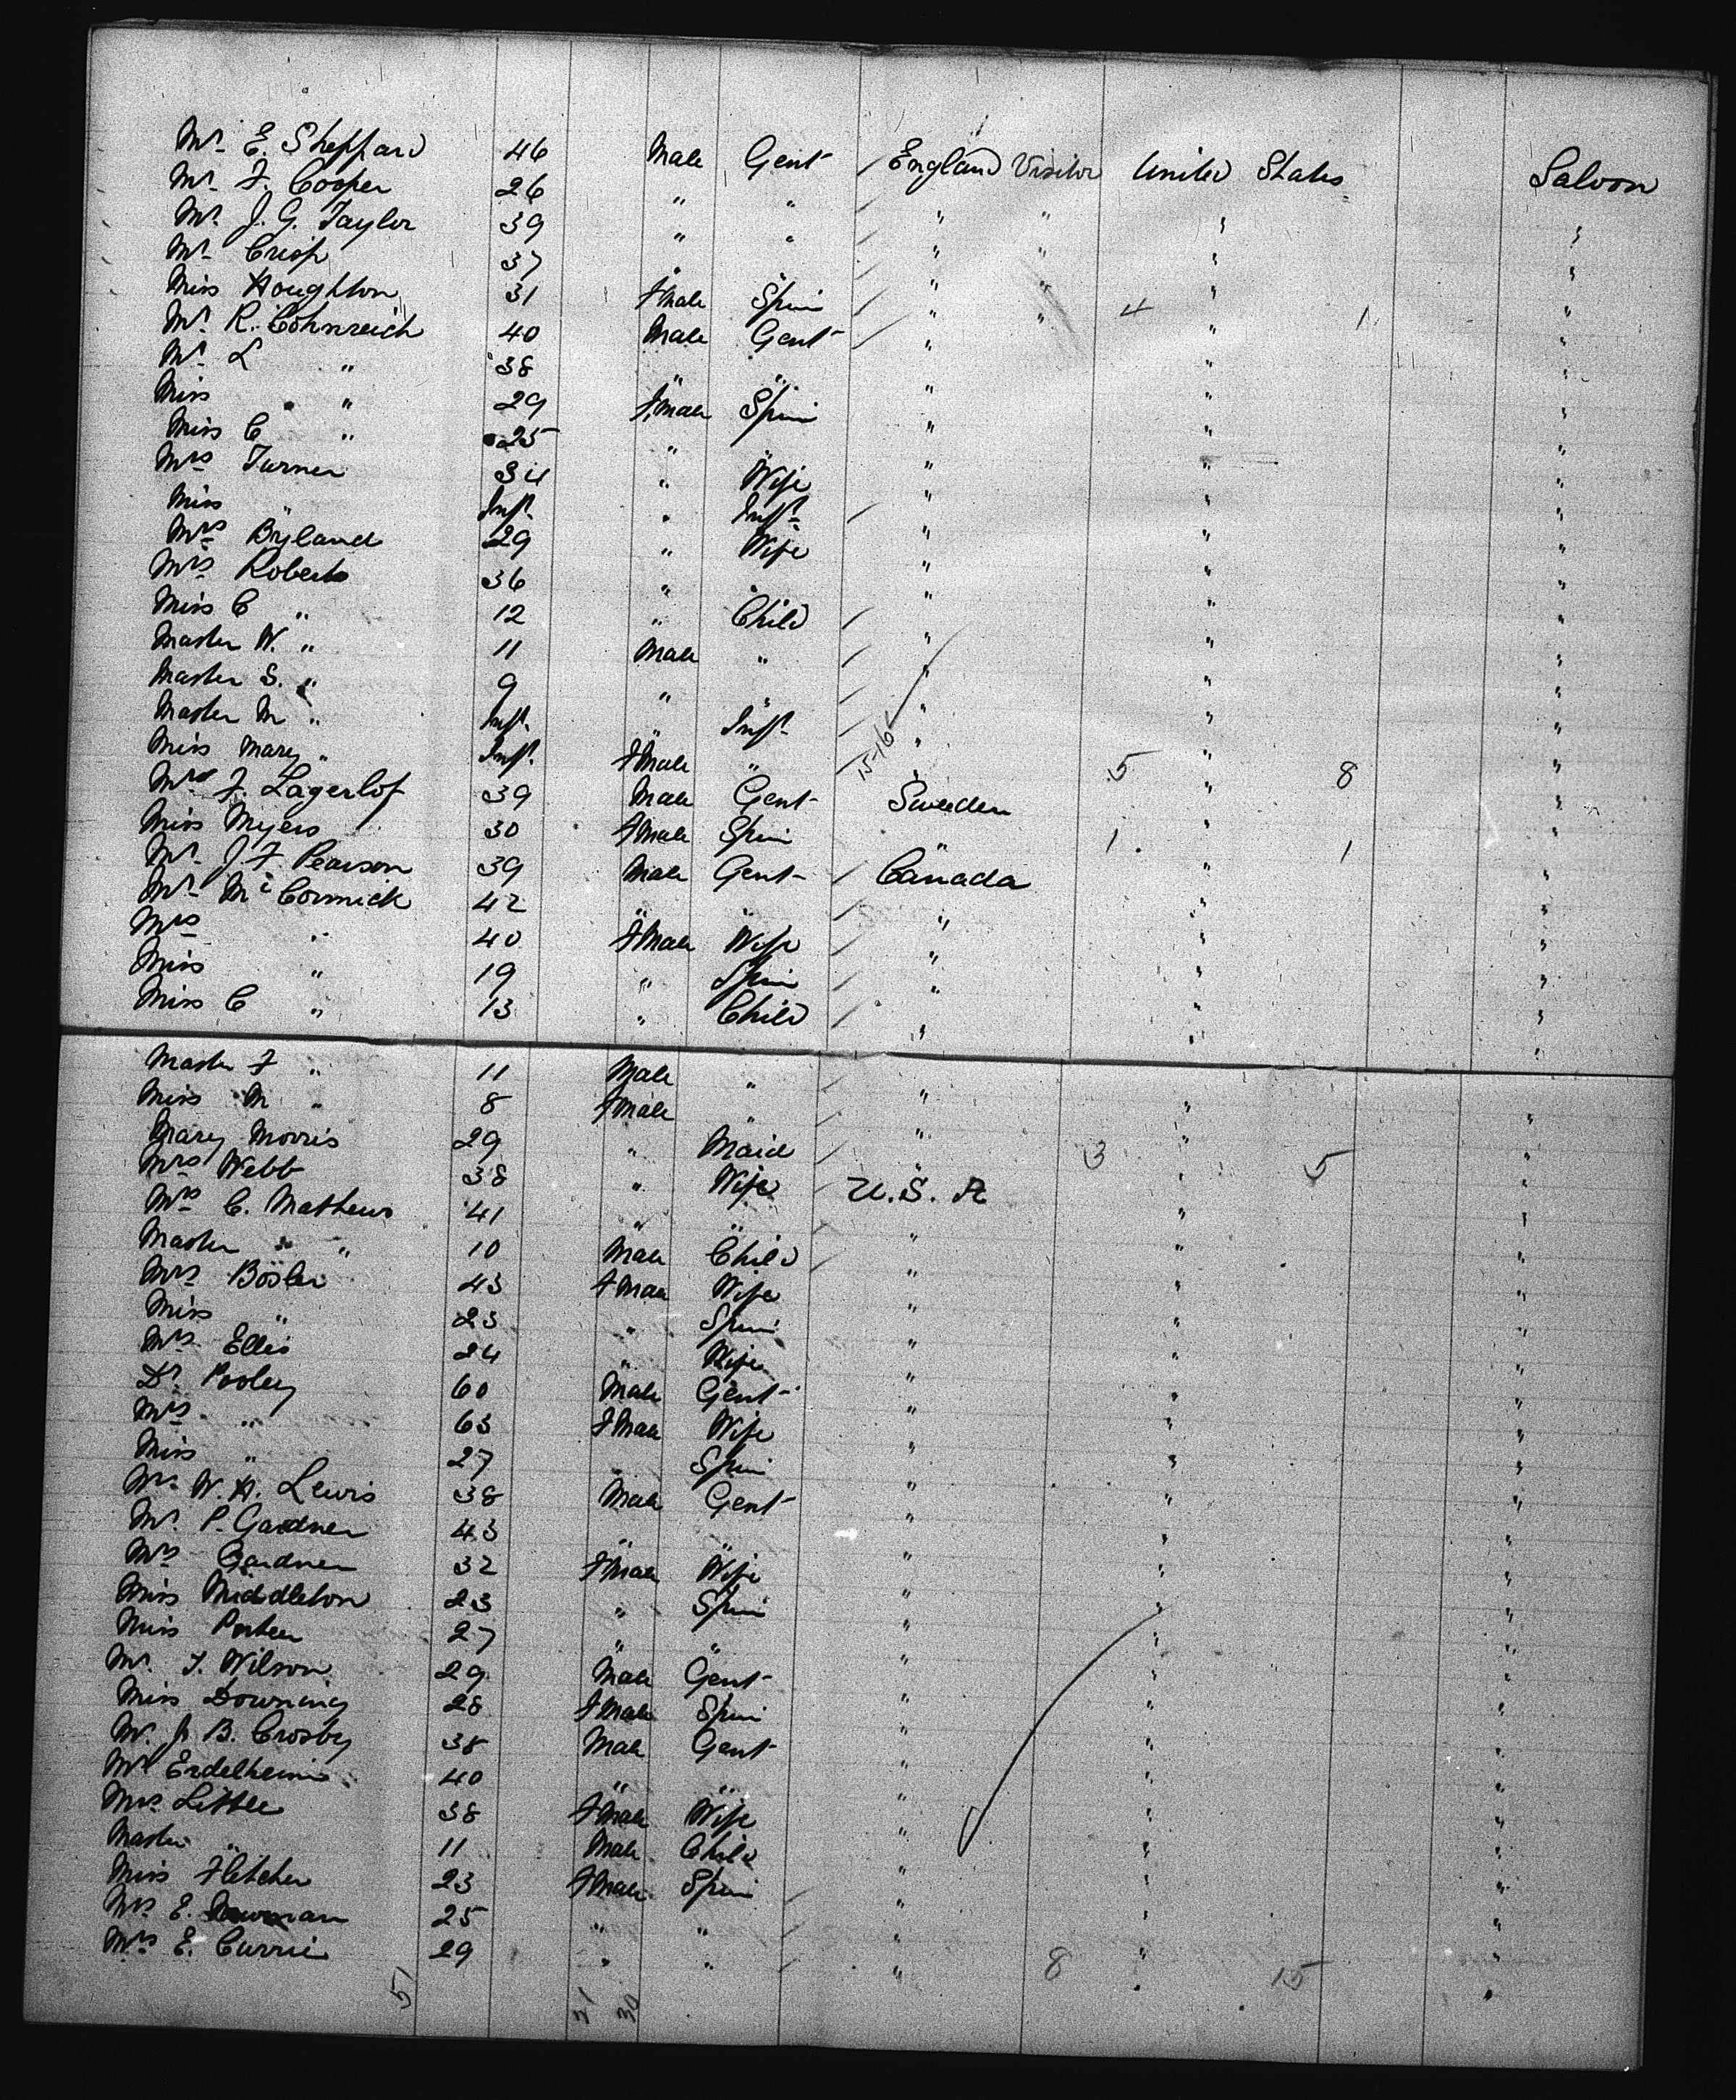 Mr. E. Sheppard 46 Male Gent England Visitor United States Saloon
Mr. F. Cooper 26 " " " " " "
Mr. J. G. Taylor 39 " " " " " "
Mr. Crisp 37 " " " " " "
Miss Houghton 31 Fmale Spin " " 4 " 1 "
Mr. R. Cohnreich 40 Male Gent " " "
Mr. L " 38 " " " " "
Miss " 29 Fmale Spin " " "
Miss C " 25 " " " " "
Mrs Turner 34 " Wife " " "
Miss " Inft. " Inft. " " "
Mrs Byland 29 " Wife " " "
Mrs Roberts 36 " " " " "
Miss C " 12 " Child " " "
Master W. " 11 Male " " " "
Master S. " 9 " " " " "
Master M " Inft. " Inft. " " "
Miss Mary " Inft. Fmale " 15-16 " 5 " 8 "
Mr. F. Lagerlof 39 Male Gent Sweden " "
Miss Myers 30 Fmale Spin " 1 " 1 "
Mr. J. F. Pearson 39 Male Gent Canada " "
Mr. McCormick 42 " " " " "
Mrs " 40 Fmale Wife " " "
Miss " 19 " Spin " " "
Miss C " 13 " Child " " "
Master F " 11 Male " " " "
Miss M " 8 Fmale " " " "
Mary Morris 29 " Maid " 3 " 5 "
Mrs Webb 38 " Wife U.S.A " "
Mrs C. Mathews 41 " " " " "
Master " " 10 Male Child " " "
Mrs Bosler 43 Fmale Wife " " "
Miss " 23 " Spin " " "
Mrs Ellis 24 " Wife " " "
Dr. Pooley 60 Male Gent " " "
Mrs " 63 Fmale Wife " " "
Miss " 27 " Spin " " "
Mr. W. H. Lewis 38 Male Gent " " "
Mr. P. Gardner 43 " " " " "
Mrs Gardner 32 Fmale Wife " " "
Miss Middleton 23 " Spin " " "
Miss Porter 27 " " " " "
Mr. J. Wilson 29 Male Gent " " "
Miss Downing 28 Fmale Spin " " "
Mr. J. B. Crosby 38 Male Gent " " "
Mr Erdelheim 40 " " " " "
Mrs Little 38 Fmale Wife " " "
Master " 11 Male Child " " "
Miss Fletcher 23 Fmale Spin " " "
Mrs E. Newman 25 " " " " "
Mrs E. Currie 29 " " " 8 " 15 "
51 21 30